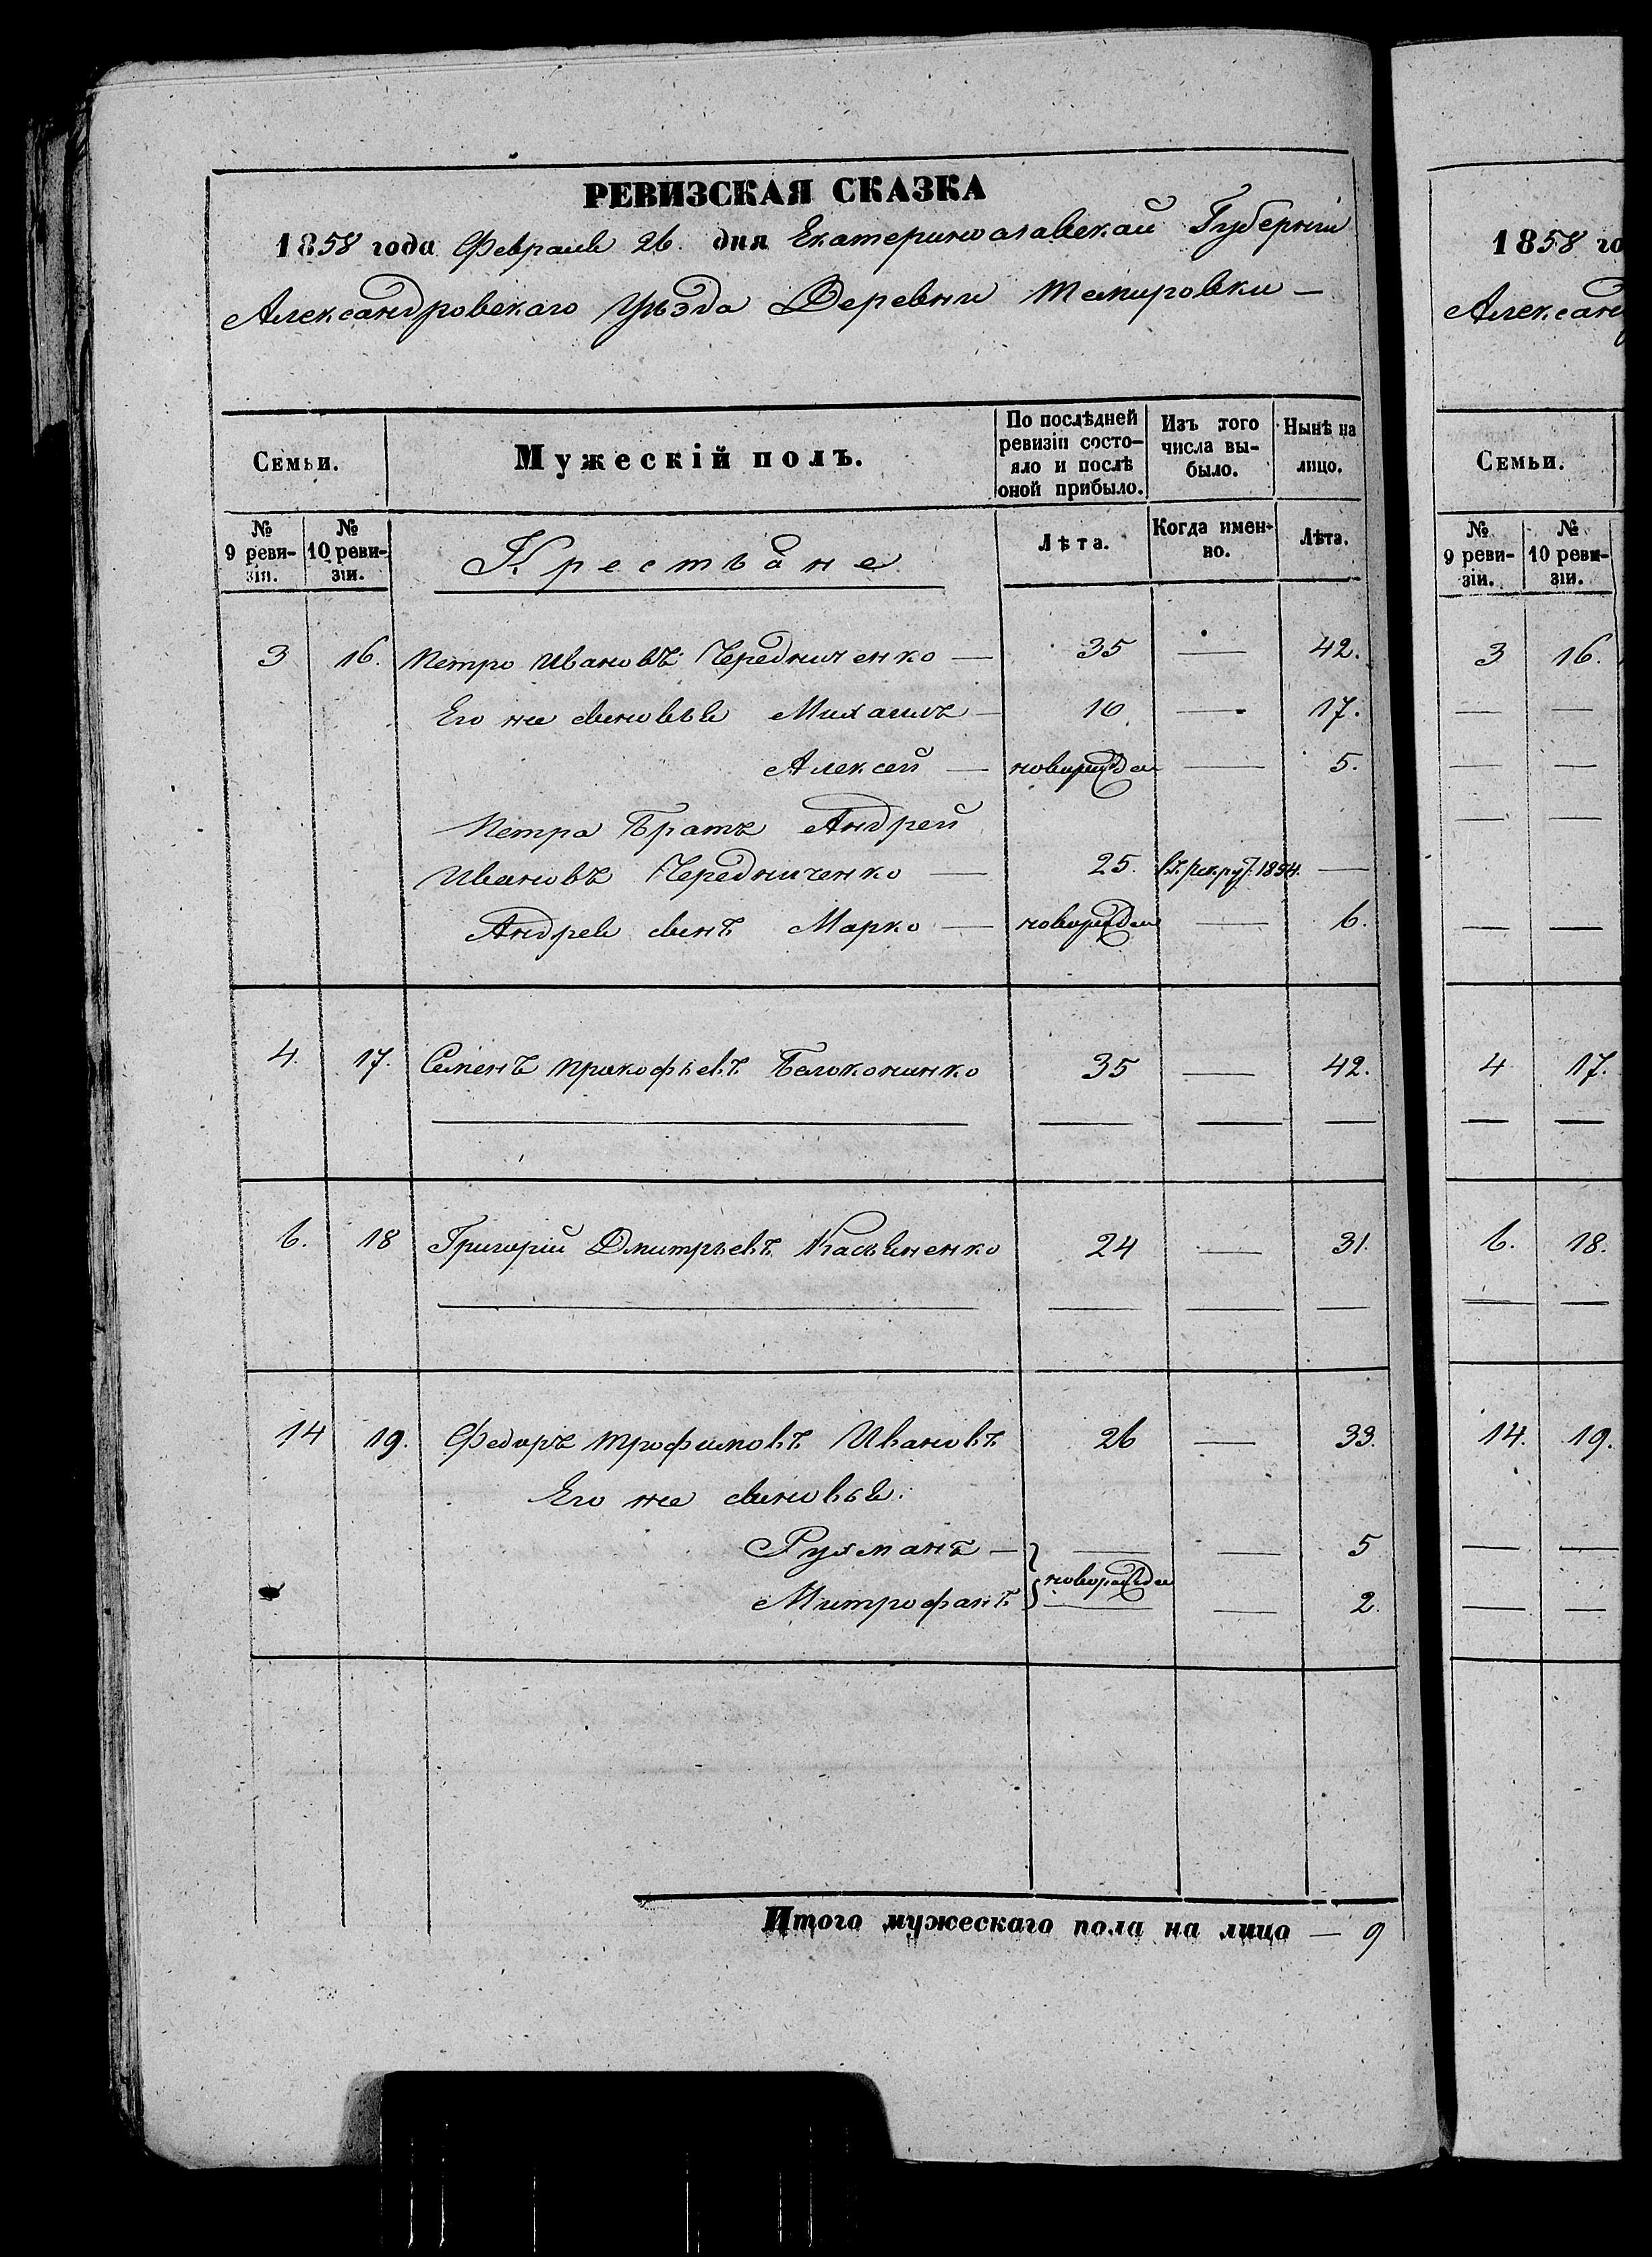 РЕВИЗСКАЯ СКАЗКА
1858 года Февраля 26. дня Екатеринославской Губерніи
Александровскаго Уѣзда Деревни Темировки —
Семьи.
Мужескій полъ.
По послѣдней ревизіи состо-
яло и послѣ
оной прибыло.
Изъ того
числа вы-
было.
Нынѣ на
лицо.
№
9 реви-
зіи.
№
10 реви-
зіи.
Крестьяне
Лѣта.
Когда имен-
но.
Лѣта.
3 16. Петро Ивановъ Чередниченко — 35 — 42.
Его же сыновья Михаилъ — 10 — 17.
Алексей — новорожден — 5.
Петра Братъ Андрей
Ивановъ Чередниченко — 25. въ рекрут. 1854. —
Андрея сынъ Марко — новорожден — 6.
4. 17. Семенъ Прокофьевъ Белоконинко 35 — 42.
6. 18 Григорій Дмитрьевъ Касьяненко 24 — 31.
14 19. Федоръ Трофимовъ Ивановъ 26 — 33.
Его же сыновья:
Рухманъ — — — 5
новорожден
Митрофанъ — — 2.
Итого мужескаго пола на лицо — 9
1858 го
Александ
Семьи.
№
9 реви-
зіи.
№
10 реви-
зіи.
3 16.
— —
— —
— —
— —
4 17.
— —
6. 18.
— —
14. 19.
— —
— —